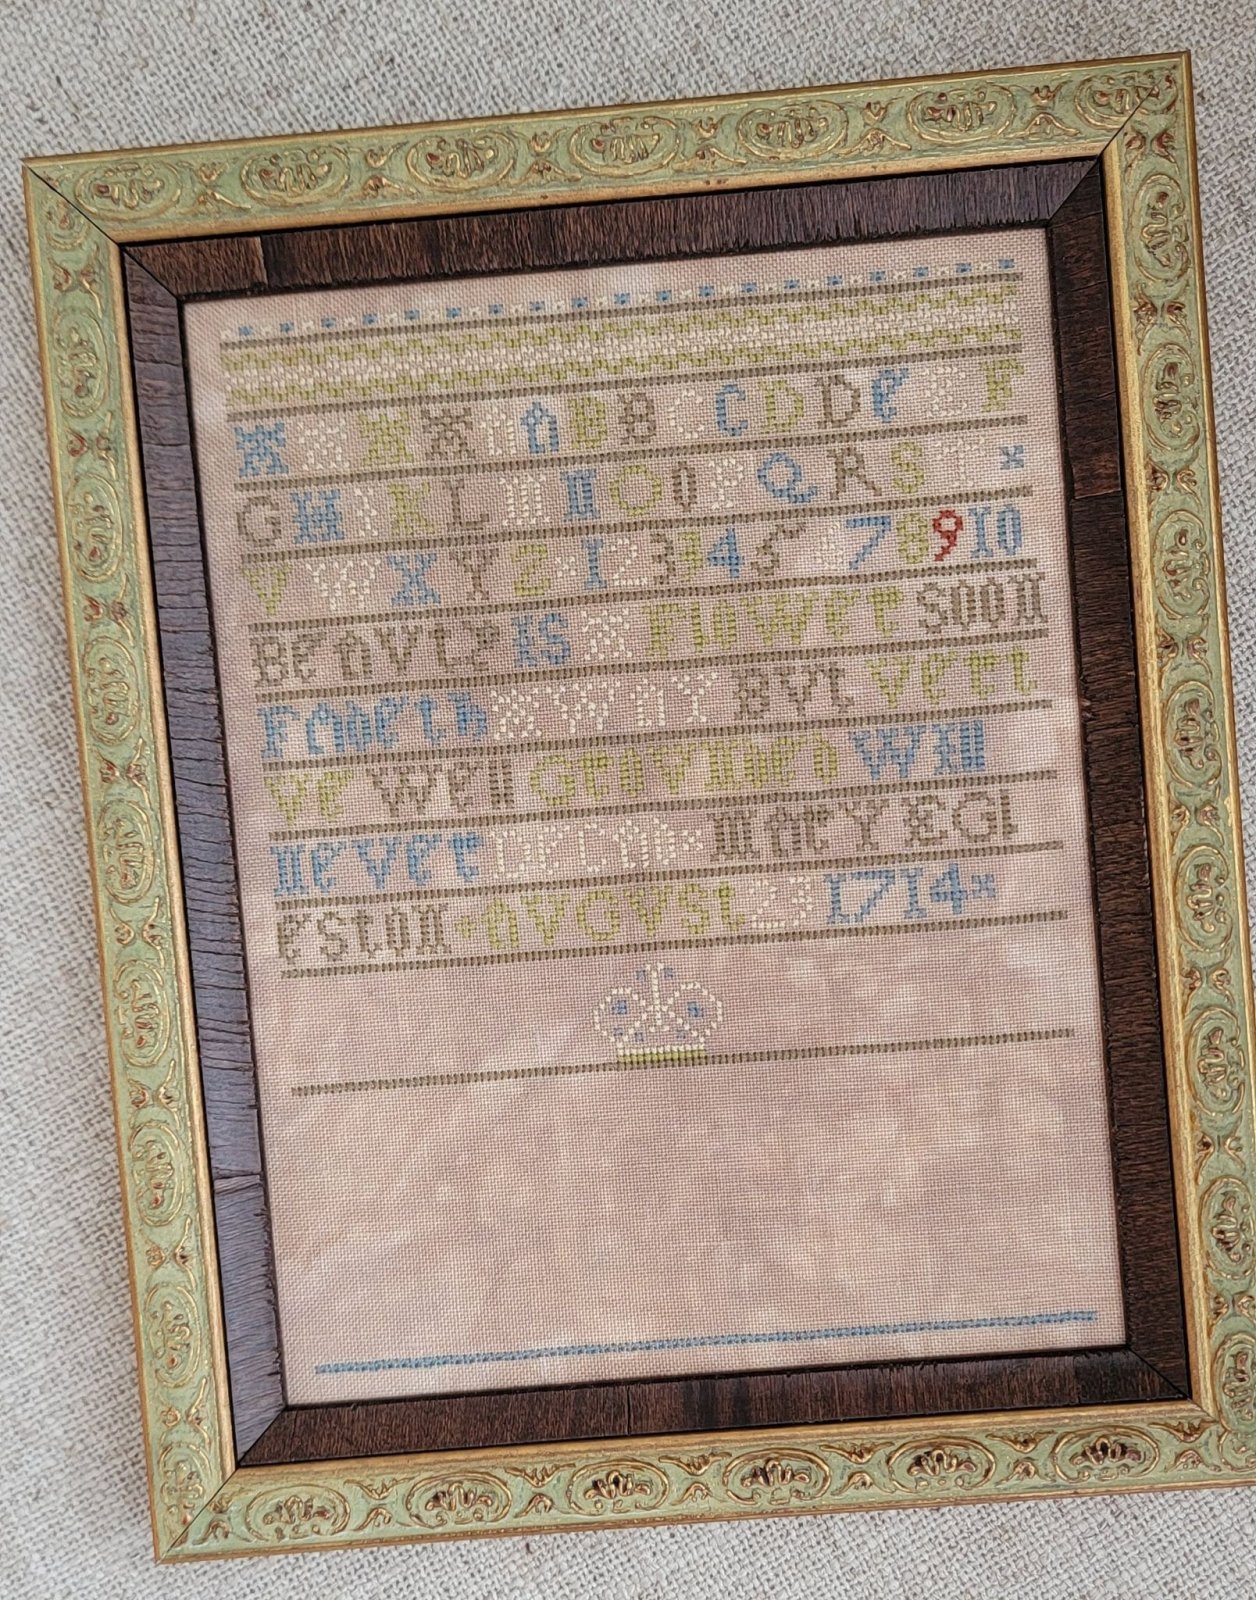 A A A A a a B B C C D D e E F
G H I K L M N O O P Q R S T
V W X Y Z 1 2 3 3 4 5 6 7 8 9 10
BeaVty IS A Flower SOON
Fadeth AWaY BVt Vert
Ve Well Grovnded WIll
Never DECAD MAeY EGl
eSTON AVGVSt 23 1714